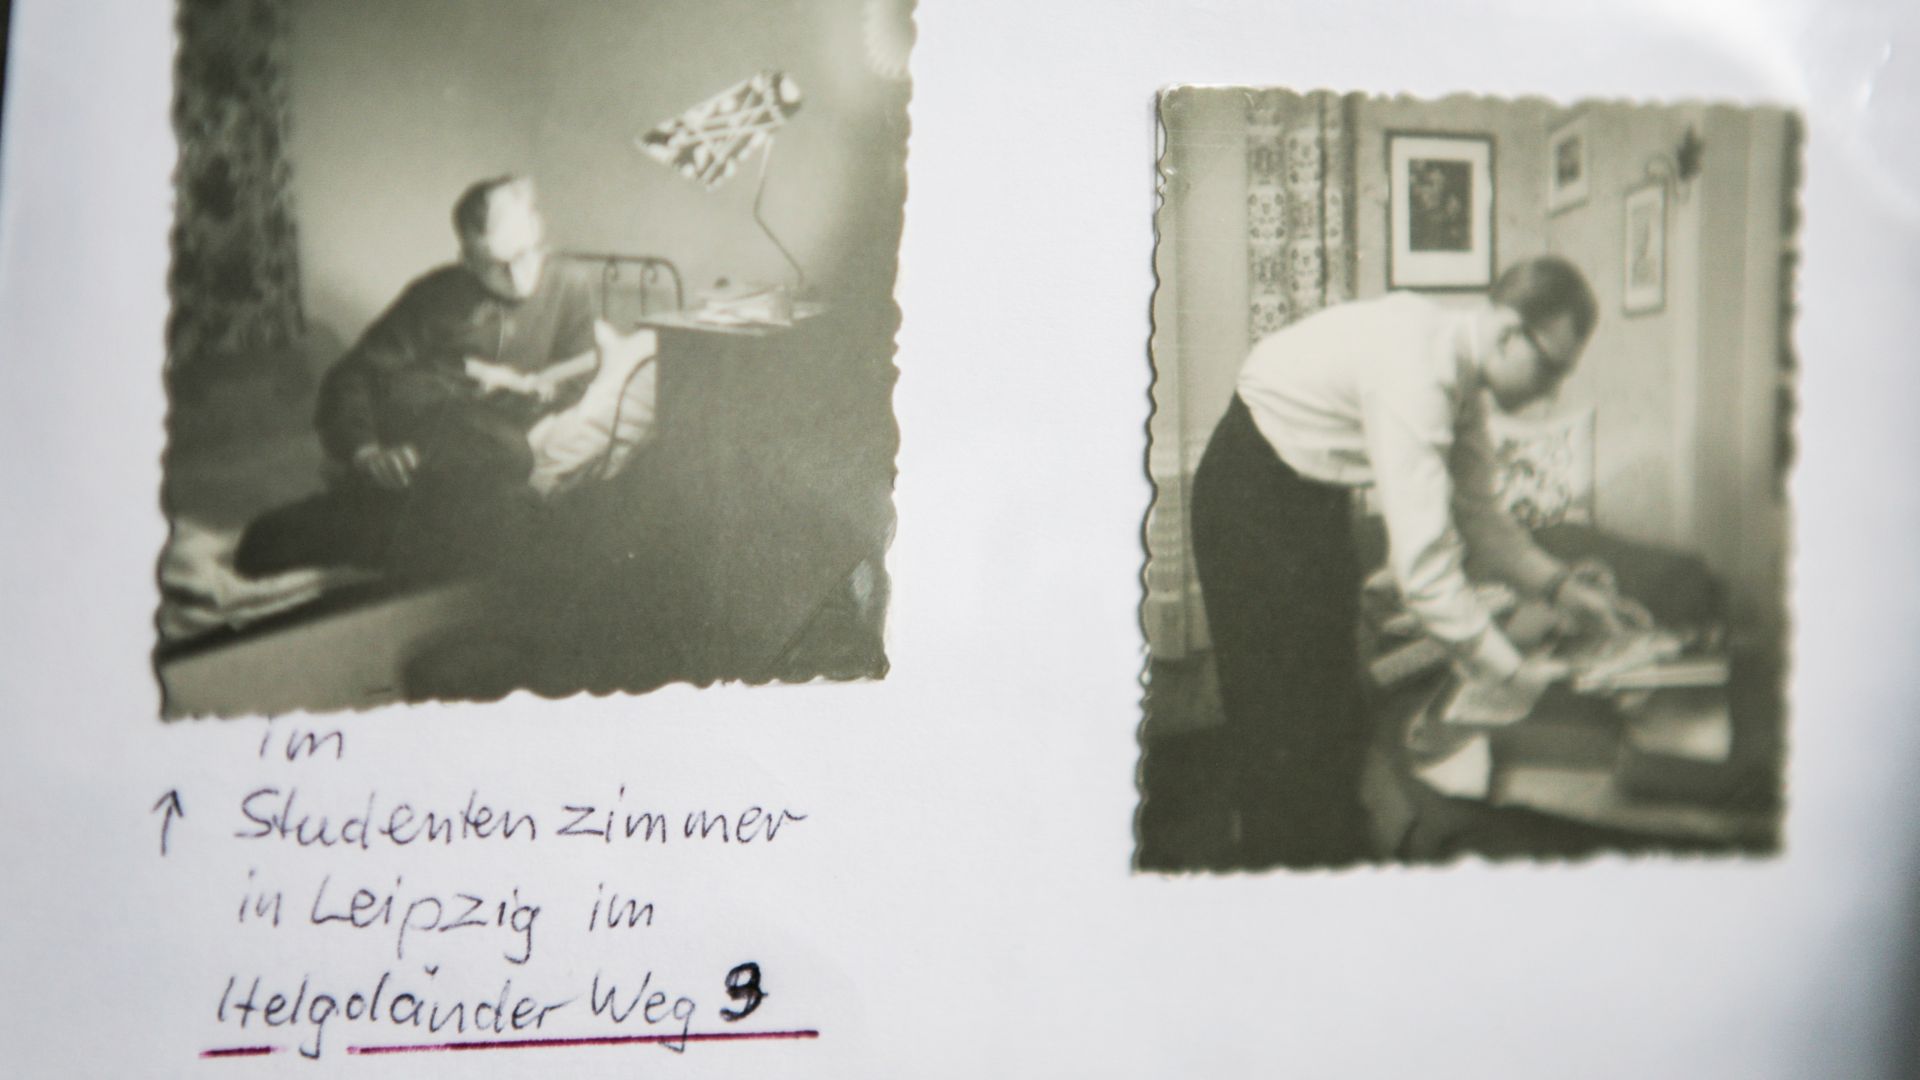 im
↑ Studentenzimmer
in Leipzig im
Helgoländer Weg 9